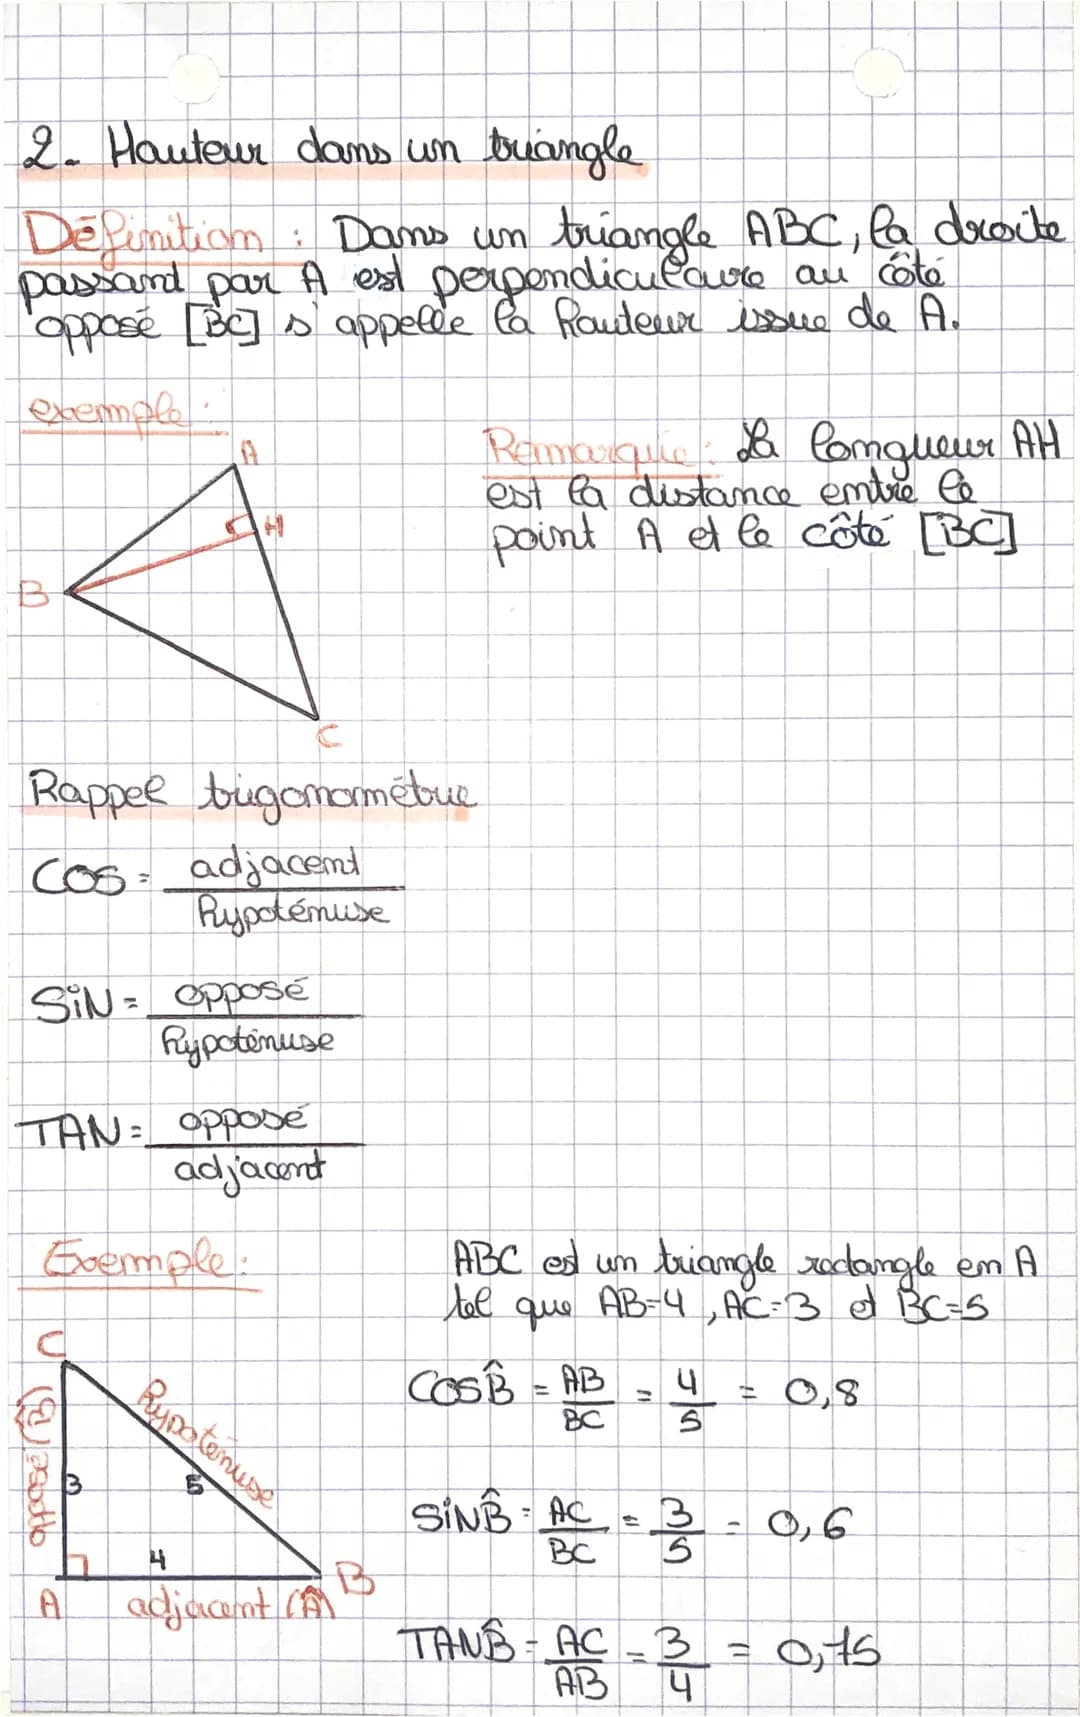 2- Hauteur dans un triangle
Définition : Dans un triangle ABC, la droite
passant par A est perpendiculaire au côté
opposé [BC] s'appelle la hauteur issue de A.
exemple :
A
H
B
C
Remarque : La longueur AH
est la distance entre le
point A et le côté [BC]
Rappel trigonométrie
COS = adjacent
hypoténuse
SiN = opposé
hypoténuse
TAN = opposé
adjacent
Exemple :
ABC est un triangle rectangle en A
tel que AB=4, AC=3 et BC=5
C
opposé (B̂)
hypoténuse
3
5
4
A
B
adjacent (Â)
COS B̂ = AB = 4 = 0,8
BC 5
SiN B̂ = AC = 3 = 0,6
BC 5
TAN B̂ = AC = 3 = 0,75
AB 4